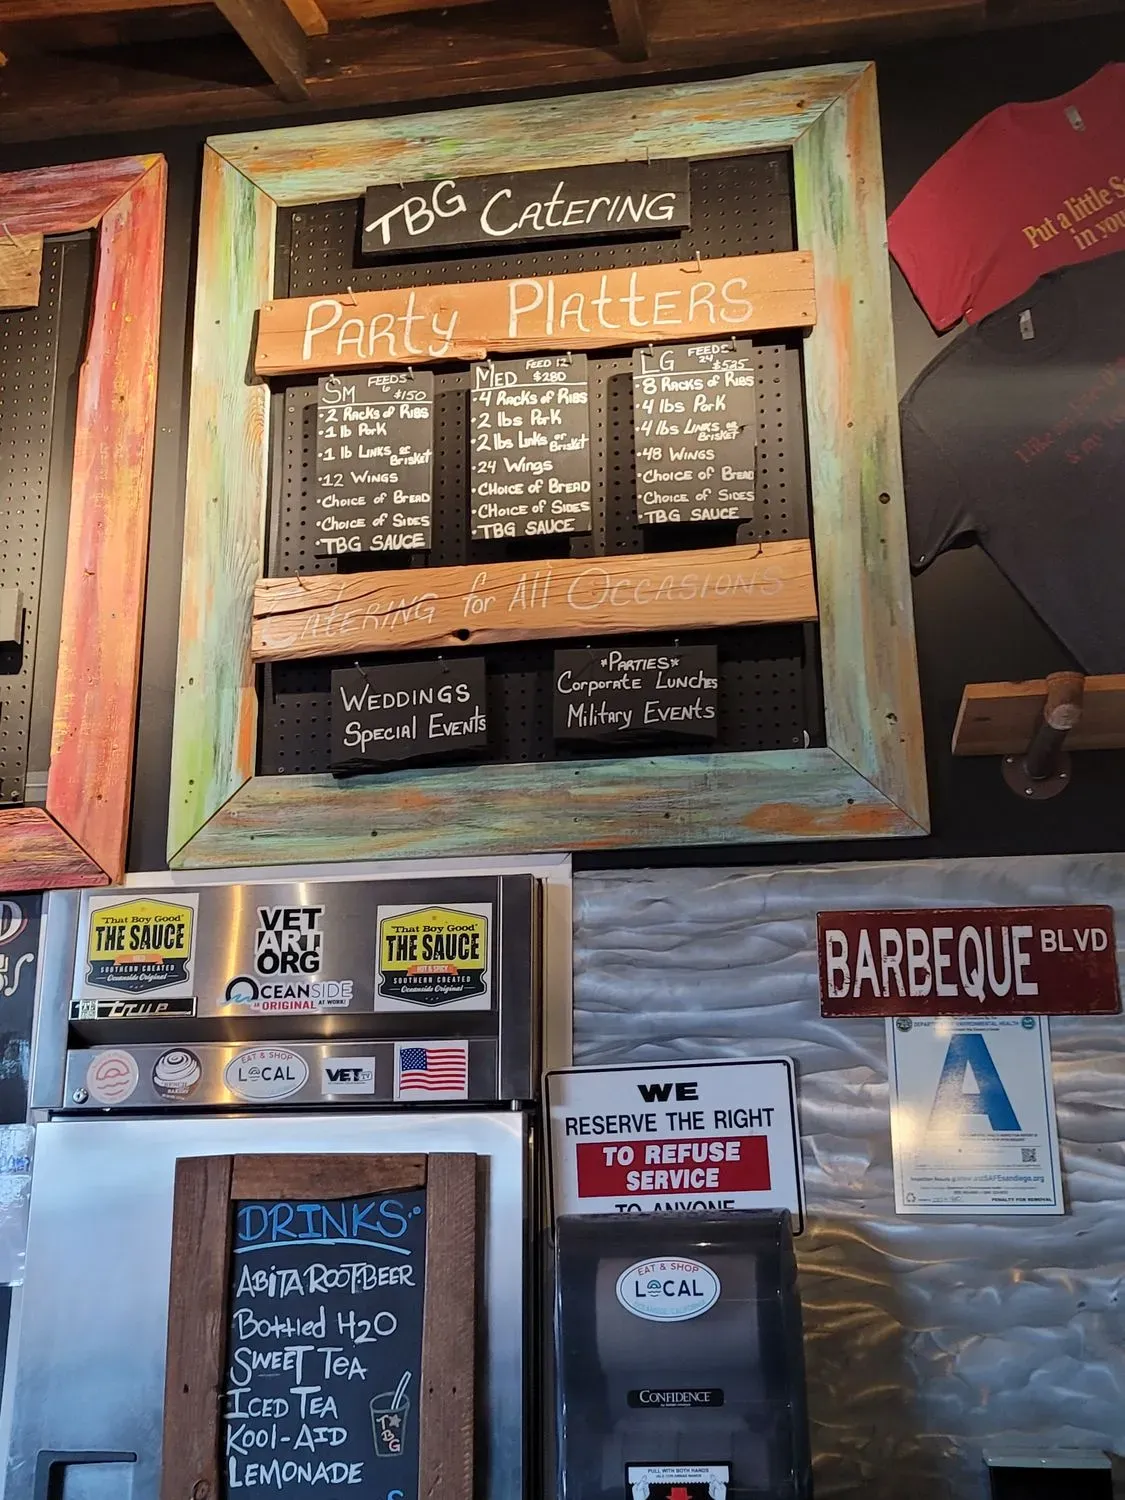 TBG Catering
Party Platters
Sm FEEDS 6 $150
• 2 Racks of Ribs
• 1 lb Pork
• 1 lb Links or Brisket
• 12 Wings
• Choice of Bread
• Choice of Sides
• TBG Sauce
Med FEED 12 $280
• 4 Racks of Ribs
• 2 lbs Pork
• 2 lbs Links or Brisket
• 24 Wings
• Choice of Bread
• Choice of Sides
• TBG Sauce
LG FEEDS 24 $525
• 8 Racks of Ribs
• 4 lbs Pork
• 4 lbs Links or Brisket
• 48 Wings
• Choice of Bread
• Choice of Sides
• TBG Sauce
Catering for All Occasions
Weddings
Special Events
*Parties*
Corporate Lunches
Military Events
Put a little
in you
"That Boy Good"
THE SAUCE
SOUTHERN CREATED
Oceanside Original
true
VET
ART
ORG
OCEANSIDE
AN ORIGINAL AT WORK!
"That Boy Good"
THE SAUCE
SOUTHERN CREATED
Oceanside Original
EAT & SHOP
LOCAL
VET
BARBEQUE BLVD
DEPARTMENT OF ENVIRONMENTAL HEALTH
A
PENALTY FOR REMOVAL
WE
RESERVE THE RIGHT
TO REFUSE
SERVICE
TO ANYONE
EAT & SHOP
LOCAL
CONFIDENCE
PULL WITH BOTH HANDS
DRINKS:
Abita Root Beer
Bottled H2O
Sweet Tea
Iced Tea
Kool-Aid
Lemonade
TBG